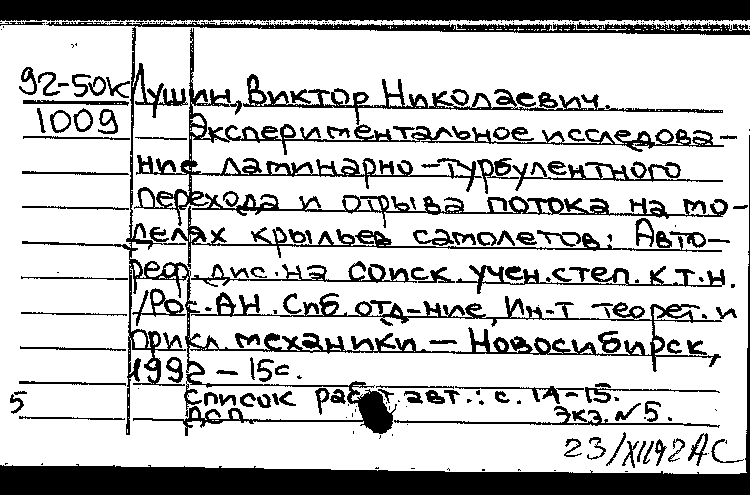 92-50к Лушин, Виктор Николаевич.
1009 Экспериментальное исследова-
ние ламинарно-турбулентного
перехода и отрыва потока на мо-
делях крыльев самолетов: Авто-
реф. дис. на соиск. учен. степ. к.т.н.
/Рос. АН. Сиб. отд-ние, Ин-т теорет. и
прикл. механики. - Новосибирск,
1992 - 15с.
5 Список работ авт.: с. 14-15.
ДСП. Экз. №5.
23/XII92 АС